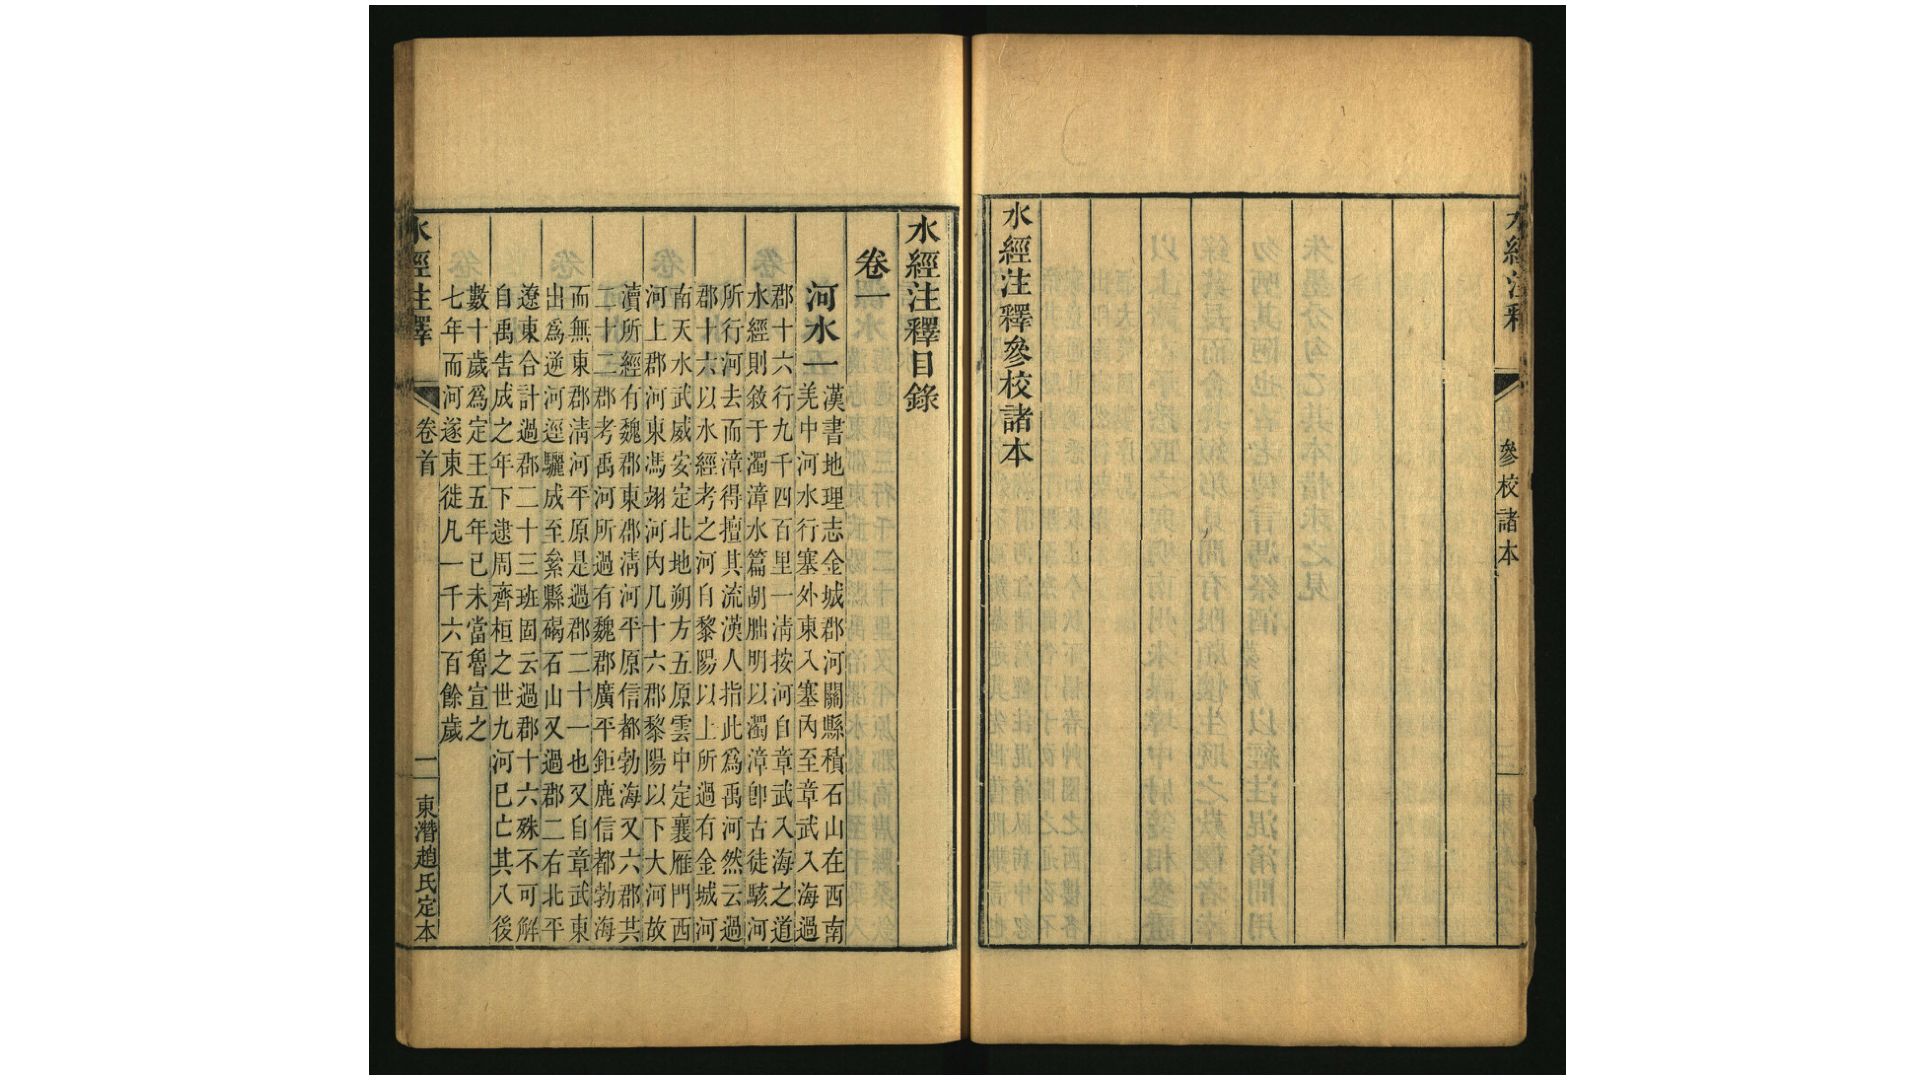 水經注釋 參校諸本
水經注釋參校諸本
水經注釋目錄
卷一
河水一
漢書地理志金城郡河關縣積石山在西南
羌中河水行塞外東入塞內至章武入海過
郡十六行九千四百里一清按河自章武入海之道
水經則敘于濁漳水篇胡朏明以濁漳卽古徒駭河
所行河去而漳得擅其流漢人指此爲禹河然云過
郡十六以水經考之河自黎陽以上所過有金城河
南天水武威安定北地朔方五原雲中定襄雁門西
河上郡河東馮翊河內凡十六郡黎陽以下大河故
瀆所經有魏郡東郡清河平原信都勃海又六郡其
二十二郡考禹河所過有魏郡廣平鉅鹿信都勃海
而無東郡清河平原是過郡二十一也又自章武東
出爲逆河逕驪成至絫縣碣石山又過郡二右北平
遼東合計過郡二十三班固云過郡十六殊不可解
自禹告成之年下逮周齊桓之世九河已亡其八後
數十歲爲定王五年己未當魯宣之
七年而河遂東徙凡一千六百餘歲
水經注釋 卷首 一 東潛趙氏定本